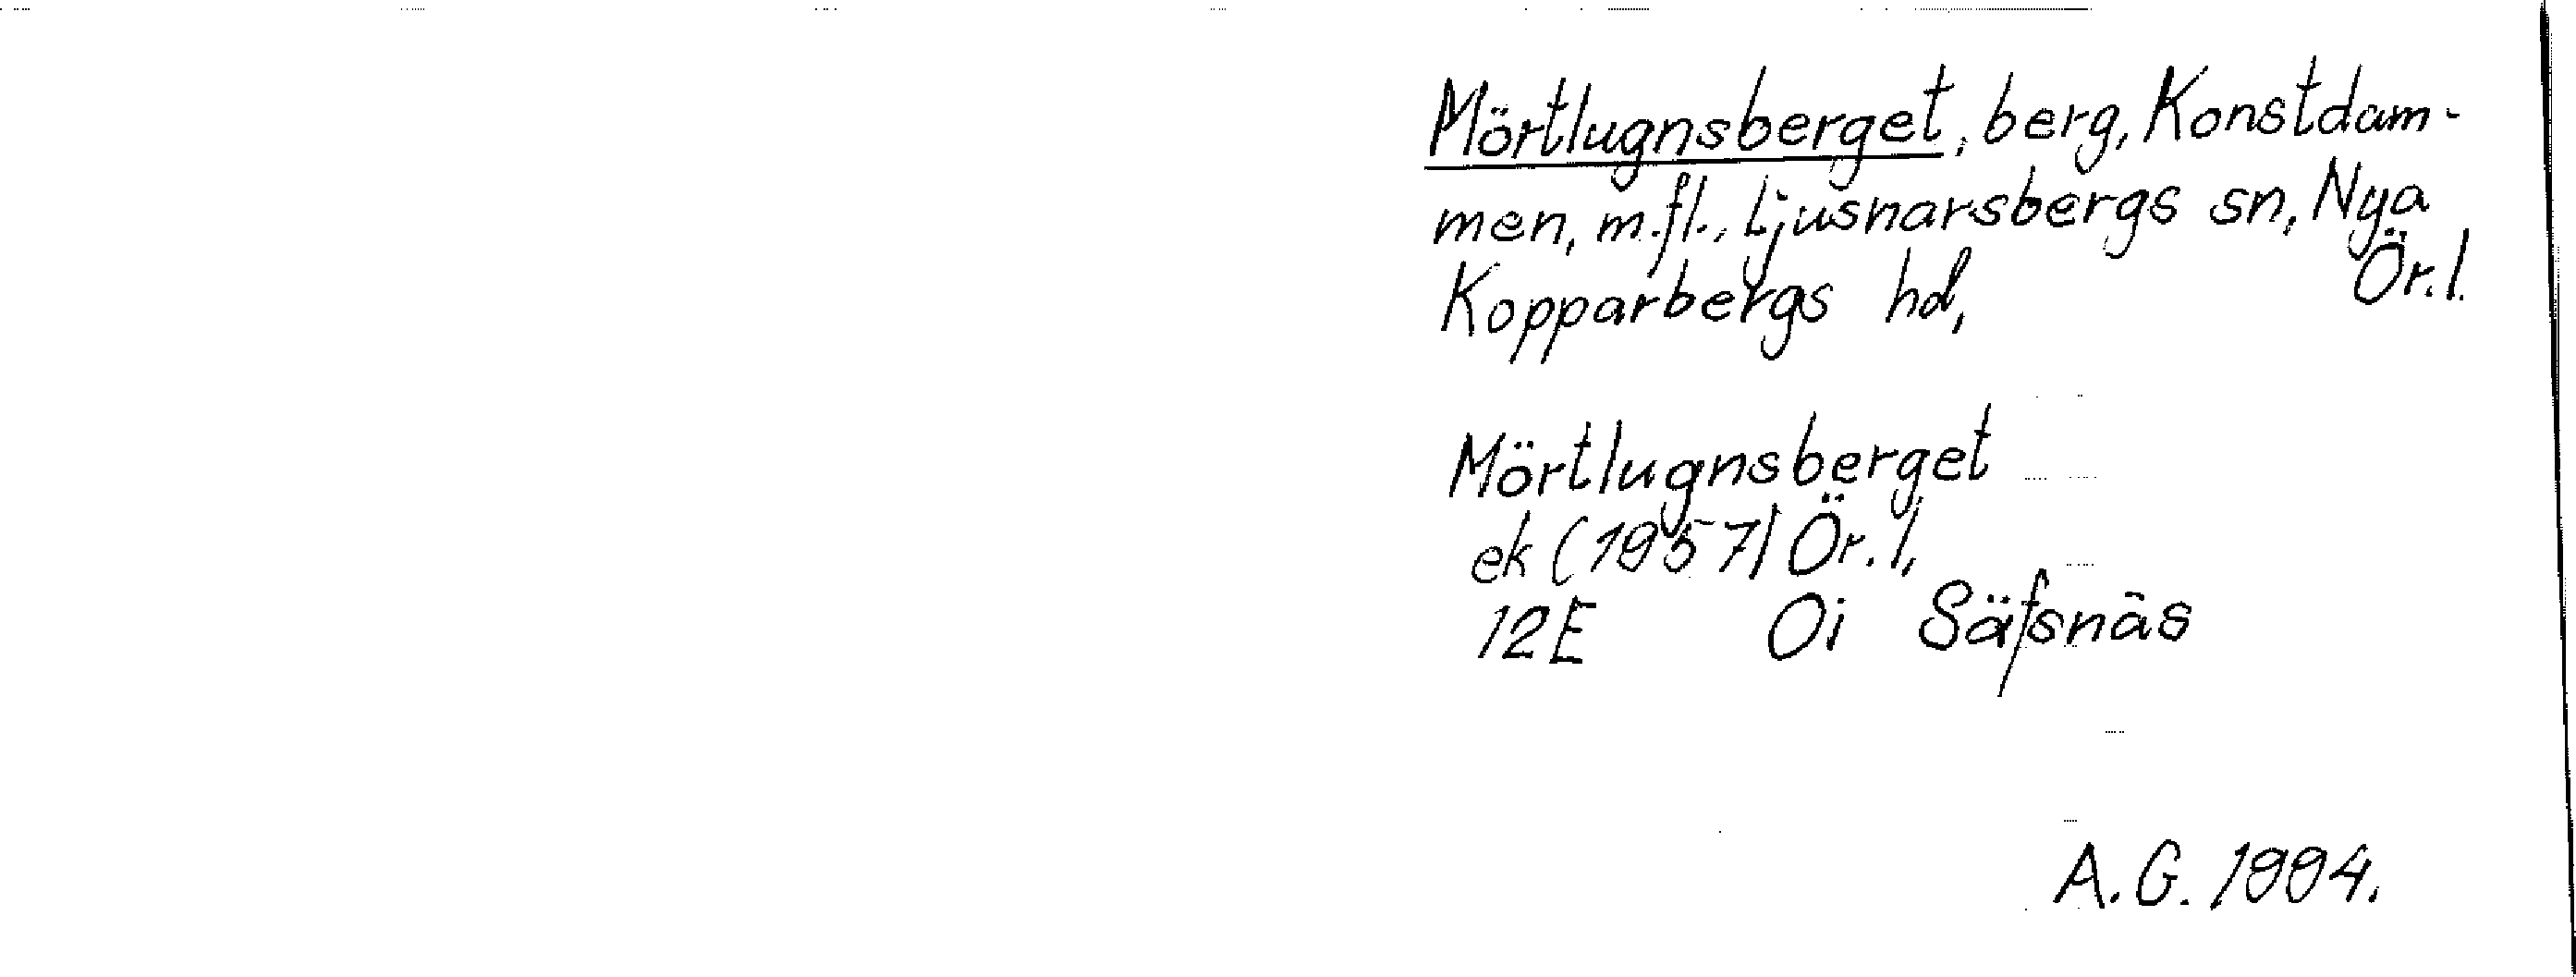 Mörtlugnsberget, berg, Konstdam-
men, m.fl., Ljusnarsbergs sn, Nya
Kopparbergs hd, Ör.l.
Mörtlugnsberget
ek (1957) Ör.l,
12E Oi Säfsnäs
A.G. 1994.